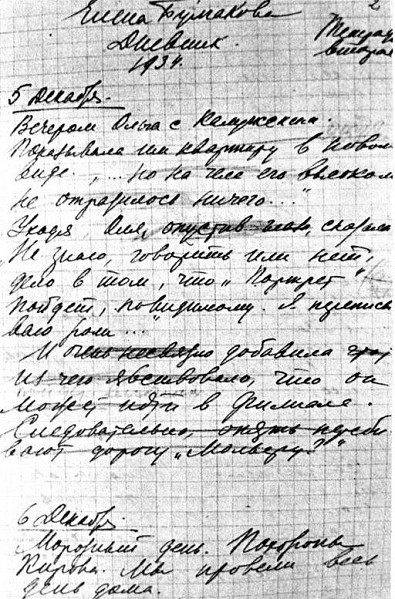 Елена Булгакова
2
Дневник.
Тетрадь
вторая
1934.
5 декабря.
Вечером Ольга с Калужским.
Показывала им квартиру в новом
виде. „... но на челе его высоком
не отразилось ничего..."
Уходя, Оля, опустив глаза, сказала
Не знаю, говорить или нет,
дело в том, что „Портрет"
пойдет, повидимому. Я переписы
ваю роли..."
И очень несвязно добавила
из чего явствовало, что он
может идти в филиале.
Следовательно, опять переби
вают дорогу „Мольеру?"
6 декабря.
Морозный день. Похороны
Кирова. Мы провели весь
день дома.